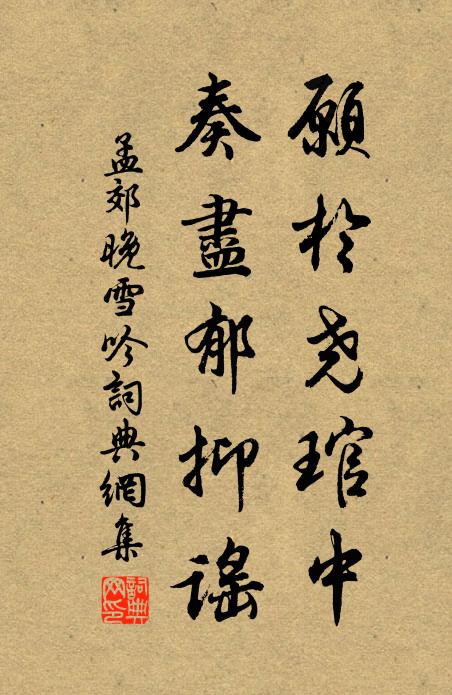 願於尧琯中
奏盡郁抑謠
孟郊晚雪吟詞典網集
詞典网印